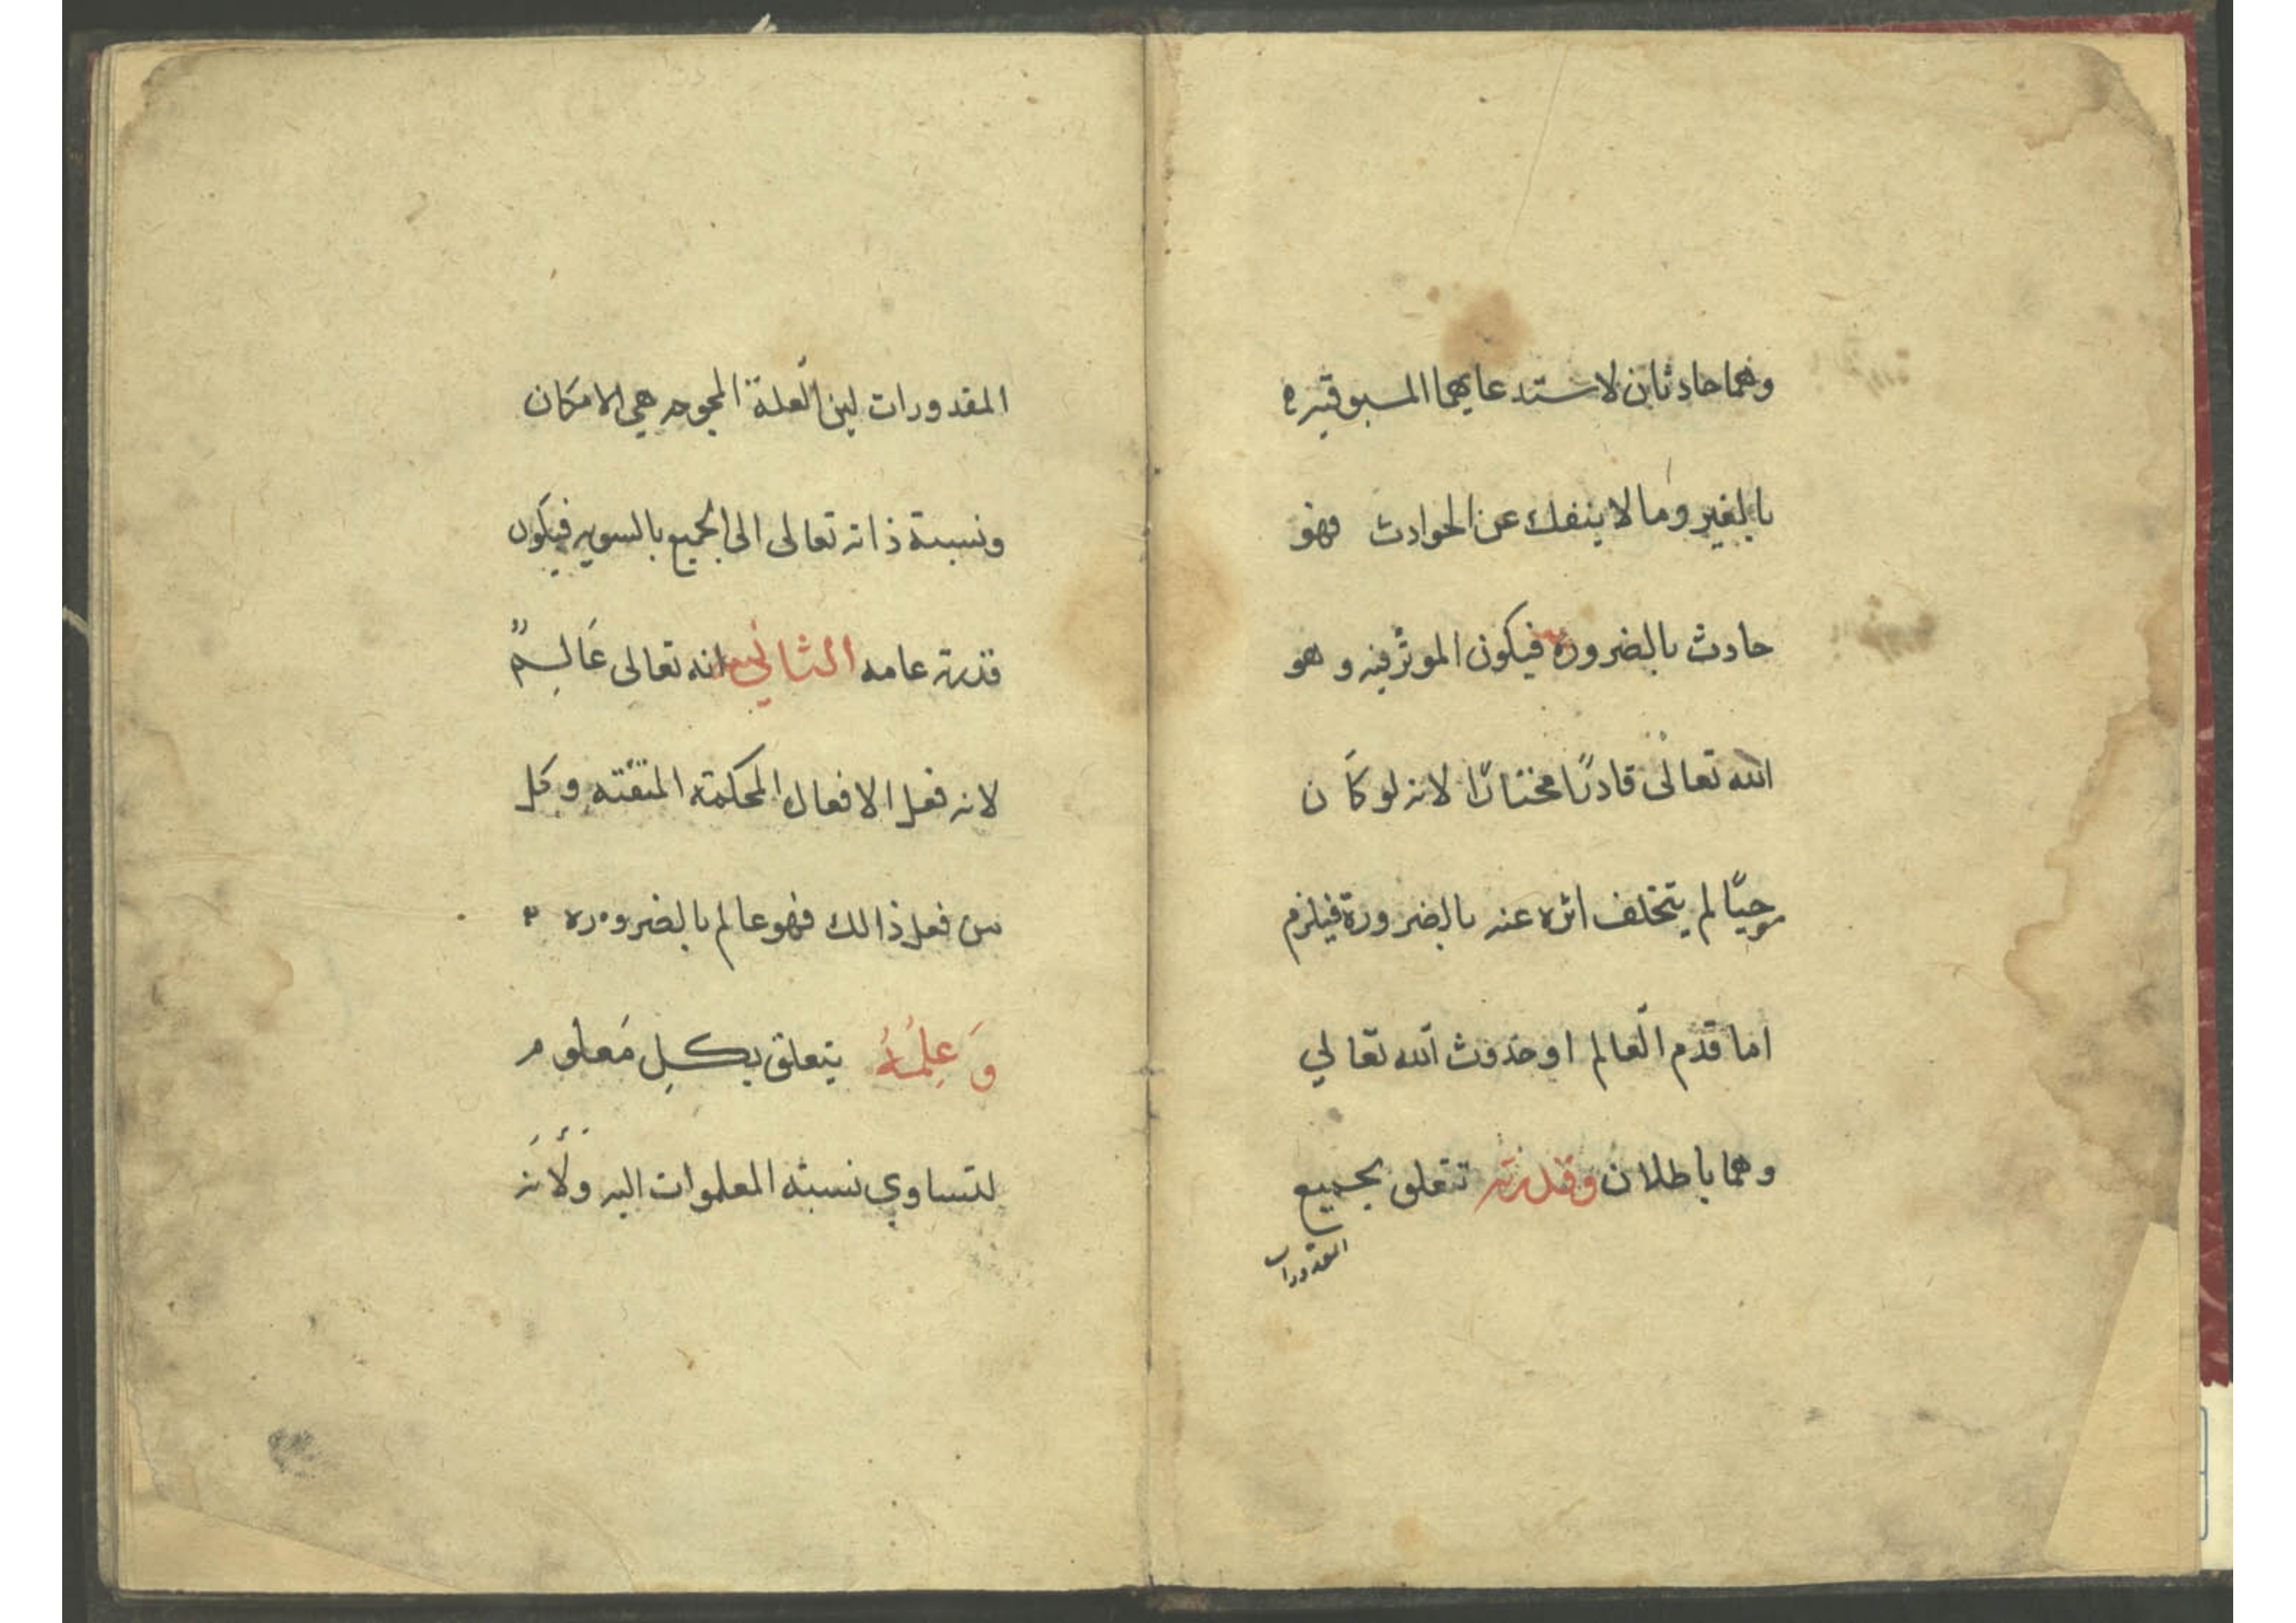 وهما حادثان لاستدعايهما المسبوقيه
بالغير وما لا ينفك عن الحوادث فهو
حادث بالضروره فيكون الموثر فيه و هو
الله تعالى قادرًا مختارًا لانه لو كان
موجبًا لم يتخلف اثره عنه بالضرورة فيلزم
اما قدم العالم او حدوث الله تعالي
وهما باطلان وقدرته تتعلق بجميع
المقدورات
المقدورات لين العلة المحوجه هي الامكان
ونسبة ذاته تعالى الى الجميع بالسويه فيكون
قدرته عامه الثاني انه تعالى عَالِمٌ
لانه فعل الافعال المحكمته المتقته وكل
من فعل ذالك فهو عالم بالضروره
وَعِلمُهُ يتعلق بكلِ مَعلوم
لتساوي نسبته المعلموات اليه ولأنه